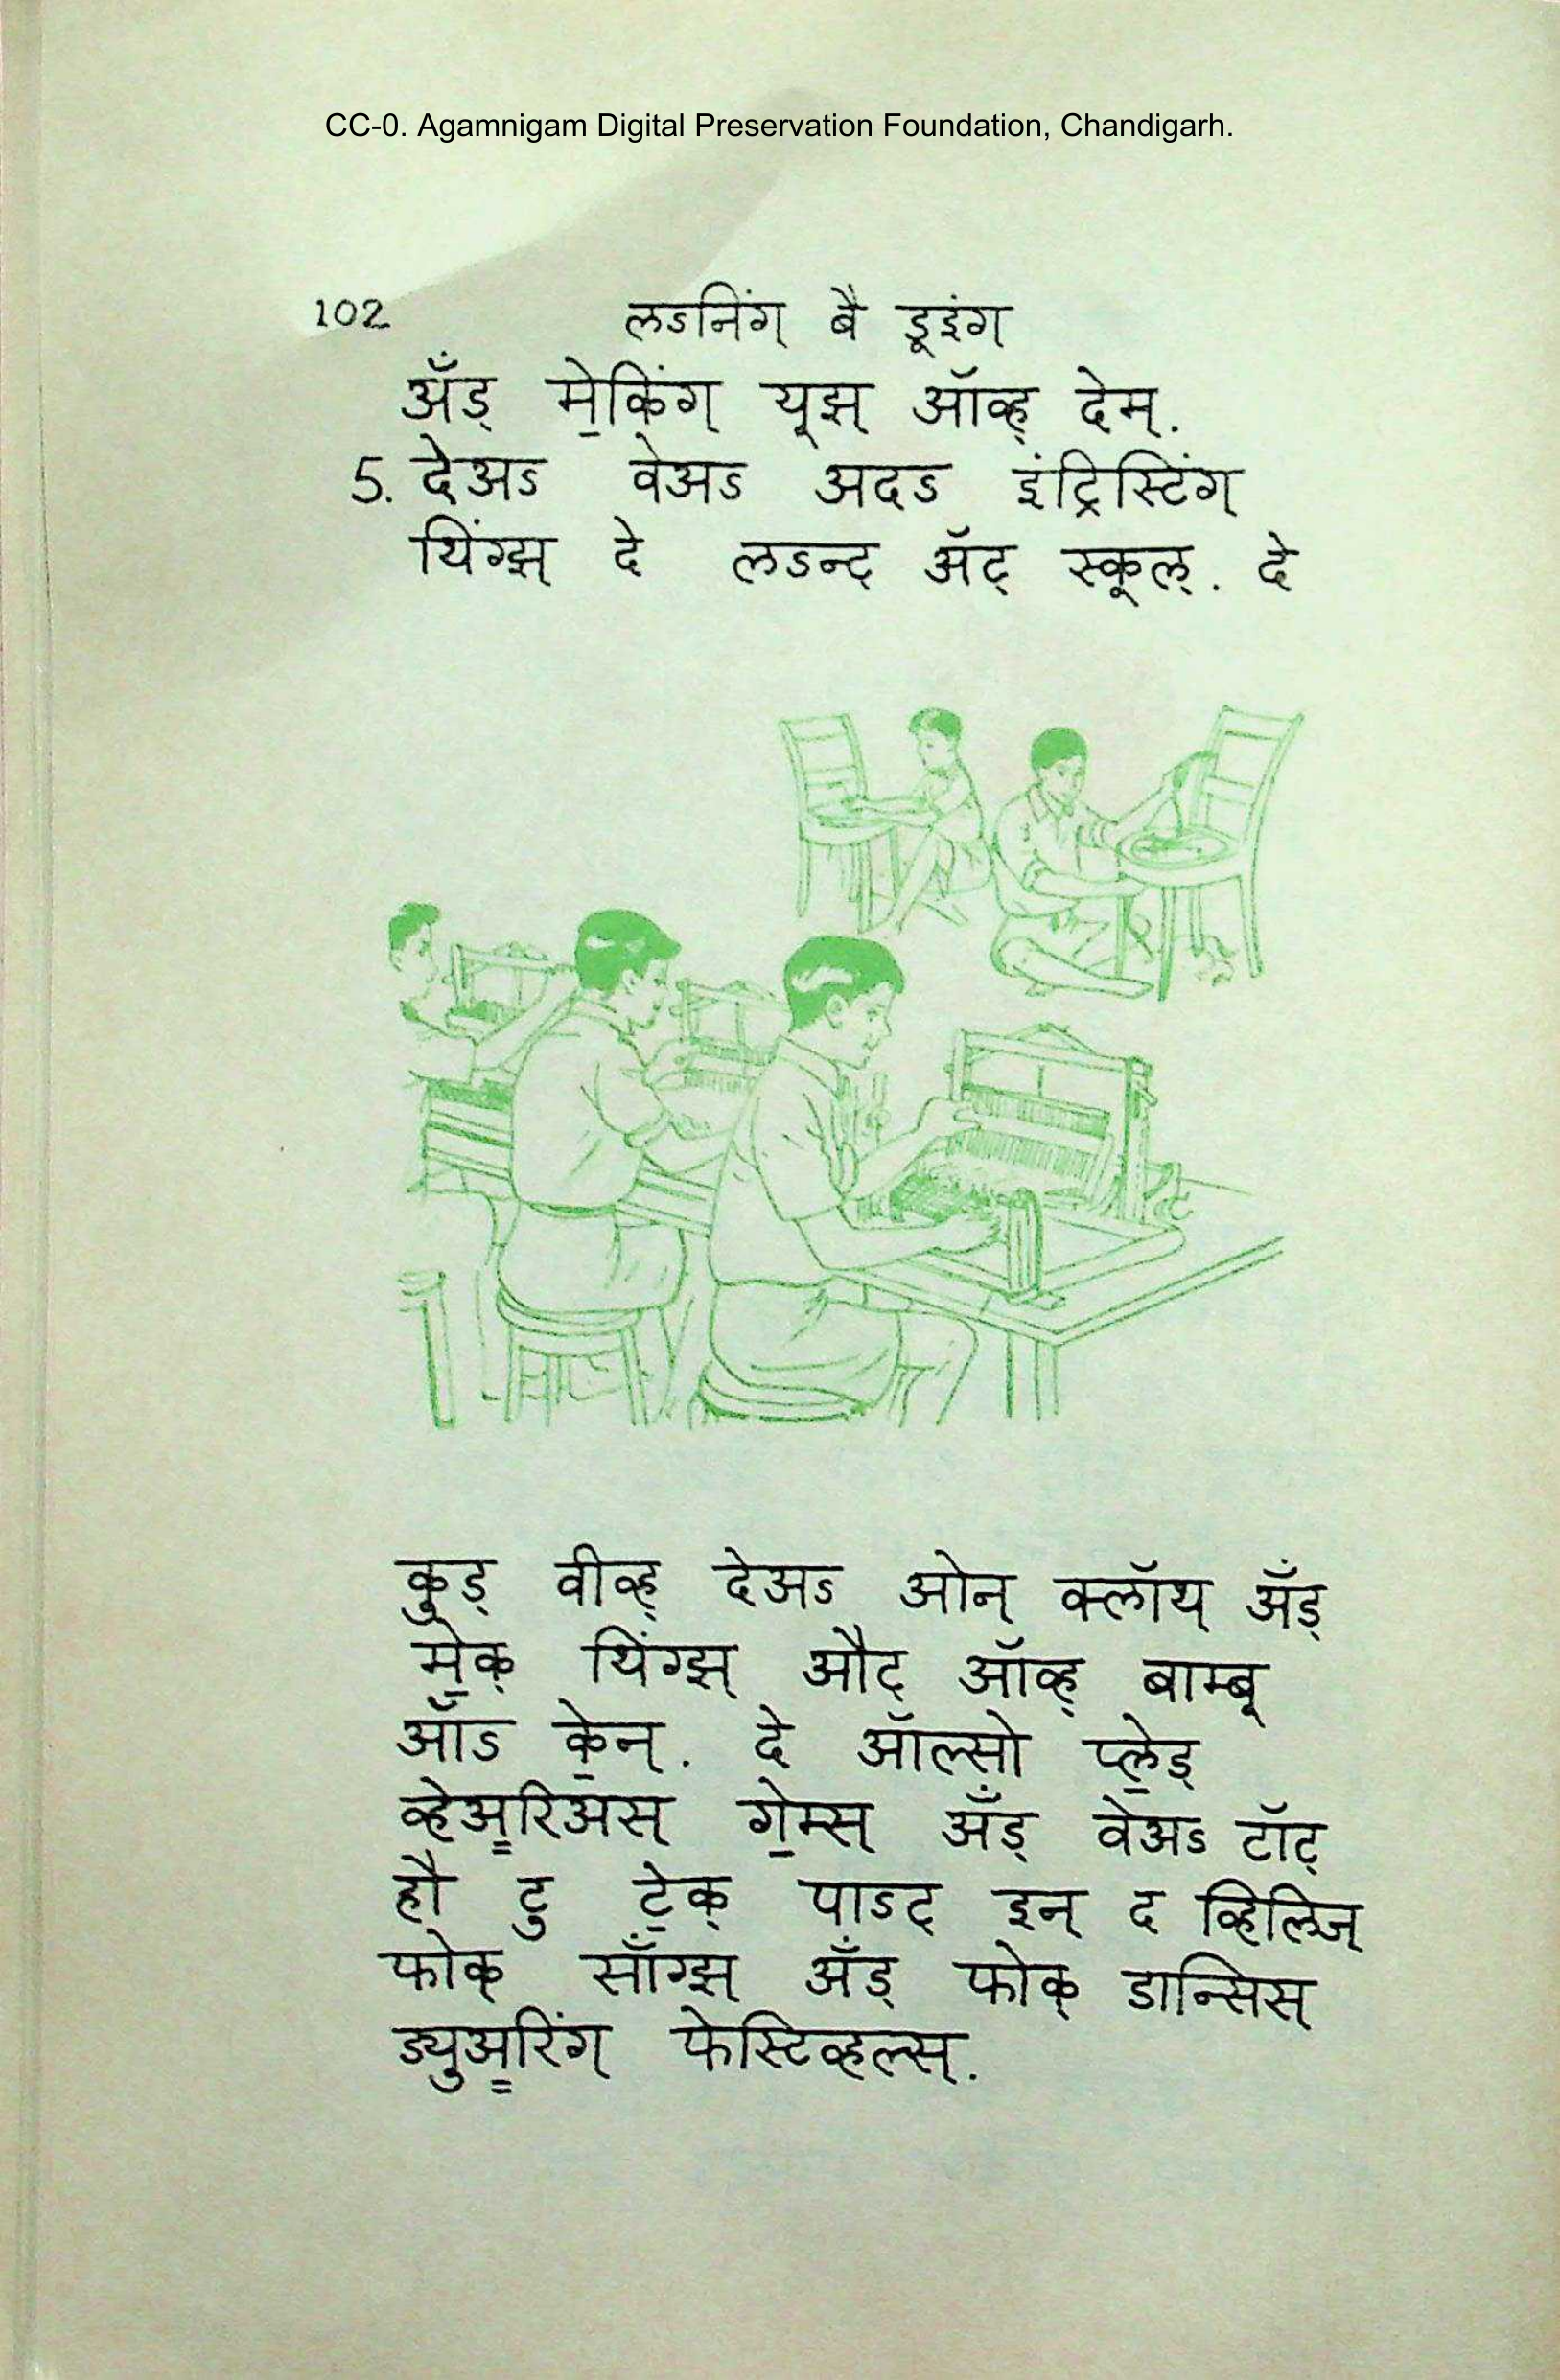 CC-0. Agamnigam Digital Preservation Foundation, Chandigarh.
102 लऽनिंग् बै डूइंग्
अँड् मे॒किंग् यूझ् ऑव्ह् देम्.
5. देअऽ वेअऽ अदऽ इंट्रिस्टिंग्
थिंग्झ् दे लऽन्ट् ॲट् स्कूल्. दे
कुड् वीव्ह् देअऽ ओन् क्लॉथ् अँड्
मे॒क् थिंग्झ् औट् ऑव्ह् बाम्बू
ऑऽ के॒न्. दे ऑल्सो प्ले॒ड्
व्हेअ॒रिअस् गे॒म्स् अँड् वेअऽ टॉट्
हौ टु टे॒क् पाऽट् इन् द व्हिलिज्
फोक् साँग्झ् अँड् फोक् डान्सिस्
ड्युअ॒रिंग् फेस्टिव्हल्स्.